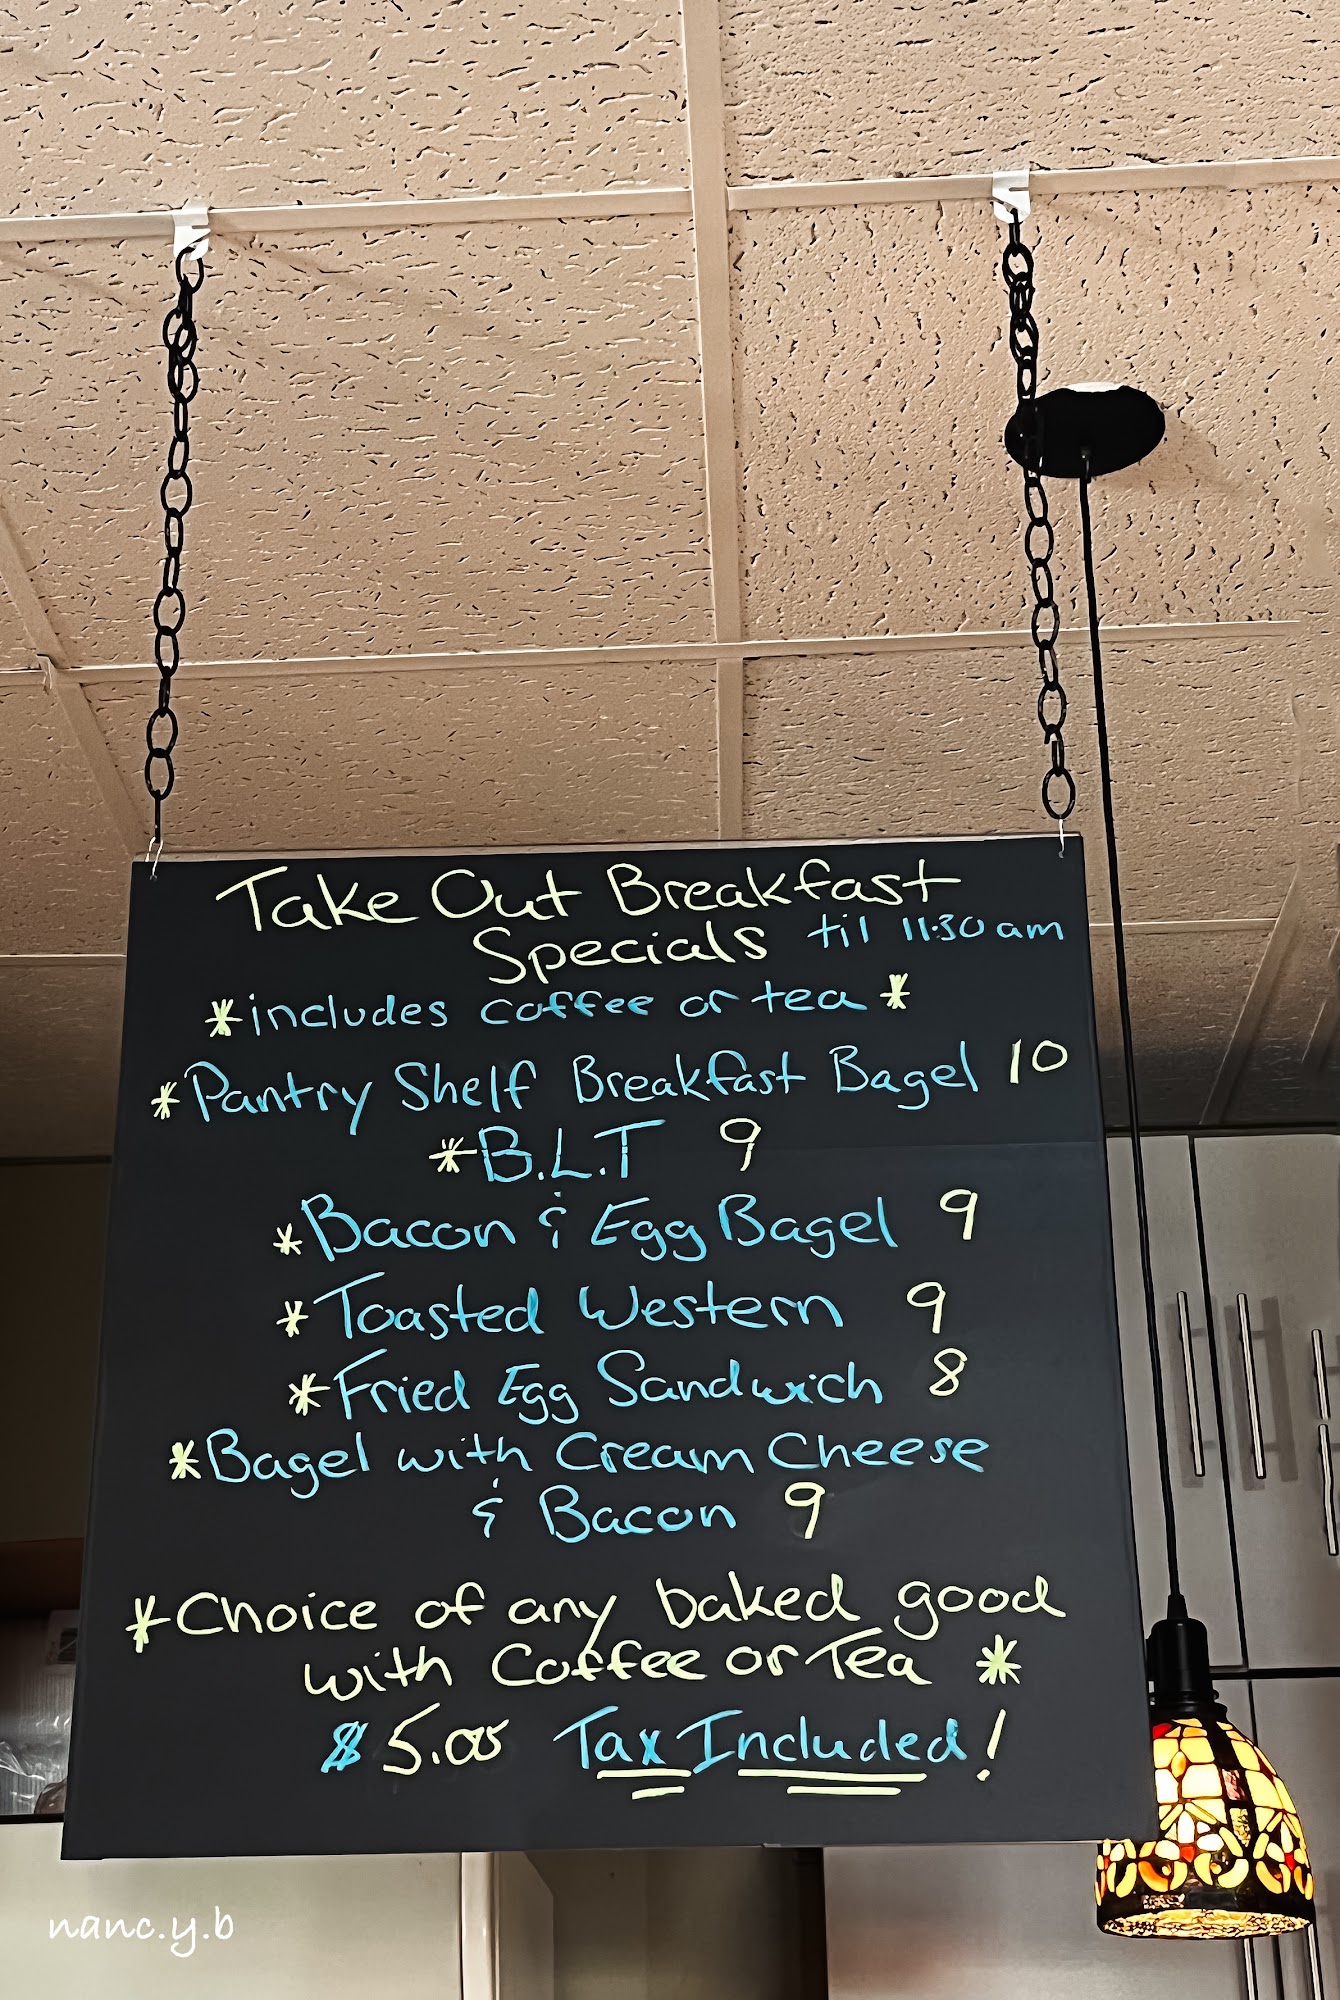 Take Out Breakfast
Specials til 11:30 am
*includes coffee or tea*
*Pantry Shelf Breakfast Bagel 10
*B.L.T 9
*Bacon & Egg Bagel 9
*Toasted Western 9
*Fried Egg Sandwich 8
*Bagel with Cream Cheese
& Bacon 9
*Choice of any baked good
with Coffee or Tea *
$5.00 Tax Included!
nanc.y.b